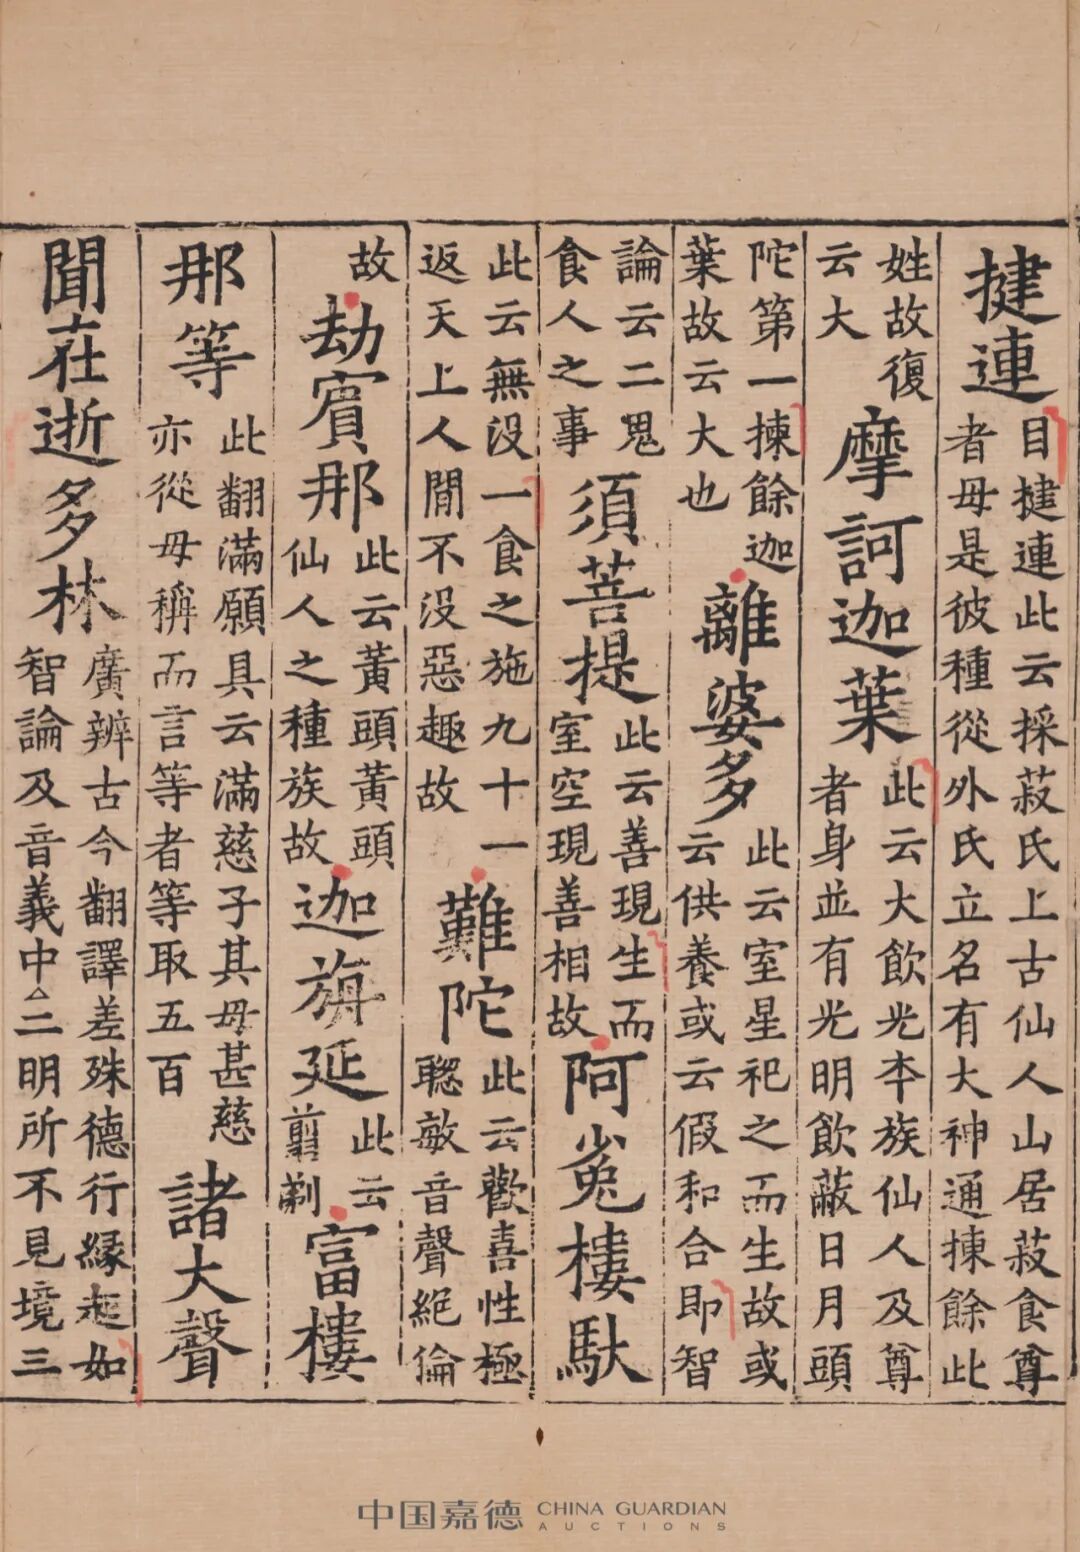 揵連
目揵連此云採菽氏上古仙人山居菽食尊
者母是彼種從外氏立名有大神通揀餘此
姓故復
云大
摩訶迦葉
此云大飲光本族仙人及尊
者身並有光明飲蔽日月頭
陀第一揀餘迦
葉故云大也
離婆多
此云室星祀之而生故或
云供養或云假和合即智
論云二鬼
食人之事
須菩提
此云善現生而
室空現善相故
阿㝹樓馱
此云無没一食之施九十一
返天上人間不没惡趣故
難陀
此云歡喜性極
聦敏音聲絕倫
故
劫賓那
此云黃頭黃頭
仙人之種族故
迦旃延
此云
剪剃
富樓
那等
此翻滿願具云滿慈子其母甚慈
亦從母稱而言等者等取五百
諸大聲
聞在逝多林
廣辨古今翻譯差殊德行緣起如
智論及音義中△二明所不見境三
中国嘉德 CHINA GUARDIAN
AUCTIONS